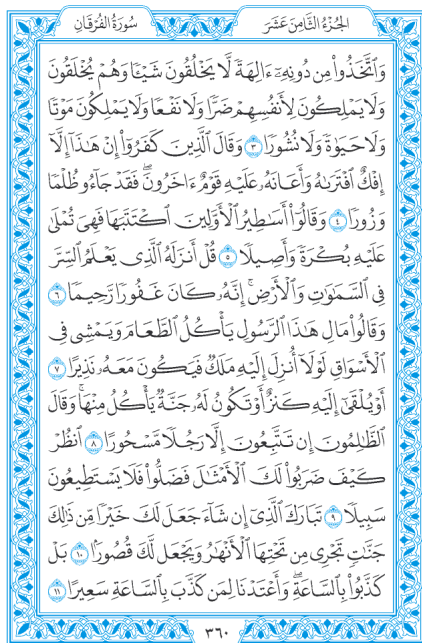 الجُزْءُ الثَّامِنَ عَشَرَ
سُورَةُ الفُرْقَانِ
وَٱتَّخَذُوا۟ مِن دُونِهِۦٓ ءَالِهَةً لَّا يَخْلُقُونَ شَيْـًٔا وَهُمْ يُخْلَقُونَ
وَلَا يَمْلِكُونَ لِأَنفُسِهِمْ ضَرًّا وَلَا نَفْعًا وَلَا يَمْلِكُونَ مَوْتًا
وَلَا حَيَوٰةً وَلَا نُشُورًا ٣ وَقَالَ ٱلَّذِينَ كَفَرُوٓا۟ إِنْ هَـٰذَآ إِلَّآ
إِفْكٌ ٱفْتَرَىٰهُ وَأَعَانَهُۥ عَلَيْهِ قَوْمٌ ءَاخَرُونَ ۖ فَقَدْ جَآءُو ظُلْمًا
وَزُورًا ٤ وَقَالُوٓا۟ أَسَـٰطِيرُ ٱلْأَوَّلِينَ ٱكْتَتَبَهَا فَهِىَ تُمْلَىٰ
عَلَيْهِ بُكْرَةً وَأَصِيلًا ٥ قُلْ أَنزَلَهُ ٱلَّذِى يَعْلَمُ ٱلسِّرَّ
فِى ٱلسَّمَـٰوَٰتِ وَٱلْأَرْضِ ۚ إِنَّهُۥ كَانَ غَفُورًا رَّحِيمًا ٦
وَقَالُوا۟ مَالِ هَـٰذَا ٱلرَّسُولِ يَأْكُلُ ٱلطَّعَامَ وَيَمْشِى فِى
ٱلْأَسْوَاقِ ۙ لَوْلَآ أُنزِلَ إِلَيْهِ مَلَكٌ فَيَكُونَ مَعَهُۥ نَذِيرًا ٧
أَوْ يُلْقَىٰٓ إِلَيْهِ كَنزٌ أَوْ تَكُونُ لَهُۥ جَنَّةٌ يَأْكُلُ مِنْهَا ۚ وَقَالَ
ٱلظَّـٰلِمُونَ إِن تَتَّبِعُونَ إِلَّا رَجُلًا مَّسْحُورًا ٨ ٱنظُرْ
كَيْفَ ضَرَبُوا۟ لَكَ ٱلْأَمْثَـٰلَ فَضَلُّوا۟ فَلَا يَسْتَطِيعُونَ
سَبِيلًا ٩ تَبَارَكَ ٱلَّذِىٓ إِن شَآءَ جَعَلَ لَكَ خَيْرًا مِّن ذَٰلِكَ
جَنَّـٰتٍ تَجْرِى مِن تَحْتِهَا ٱلْأَنْهَـٰرُ وَيَجْعَل لَّكَ قُصُورًۢا ١٠ بَلْ
كَذَّبُوا۟ بِٱلسَّاعَةِ ۖ وَأَعْتَدْنَا لِمَن كَذَّبَ بِٱلسَّاعَةِ سَعِيرًا ١١
٣٦٠